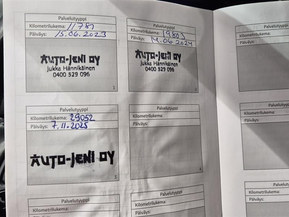 Palvelutyyppi
Kilometrilukema: 11781
Päiväys: 15.06.2023
AUTO-JENI OY
Jukka Hännikäinen
0400 329 096
Palvelutyyppi
Kilometrilukema:
Päiväys: 14.06.2024
AUTO-JENI OY
Jukka Hännikäinen
0400 329 096
Palvelutyyppi
Kilometrilukema: 29052
Päiväys: 7.11.2025
AUTO-JENI OY
Palvelutyyppi
Kilometrilukema:
Päiväys:
Palvelutyyppi
Palvelutyyppi
Palvelutyyppi
Kilometrilukema:
Päiväys:
Palvelutyyppi
Kilometrilukema:
Päiväys: